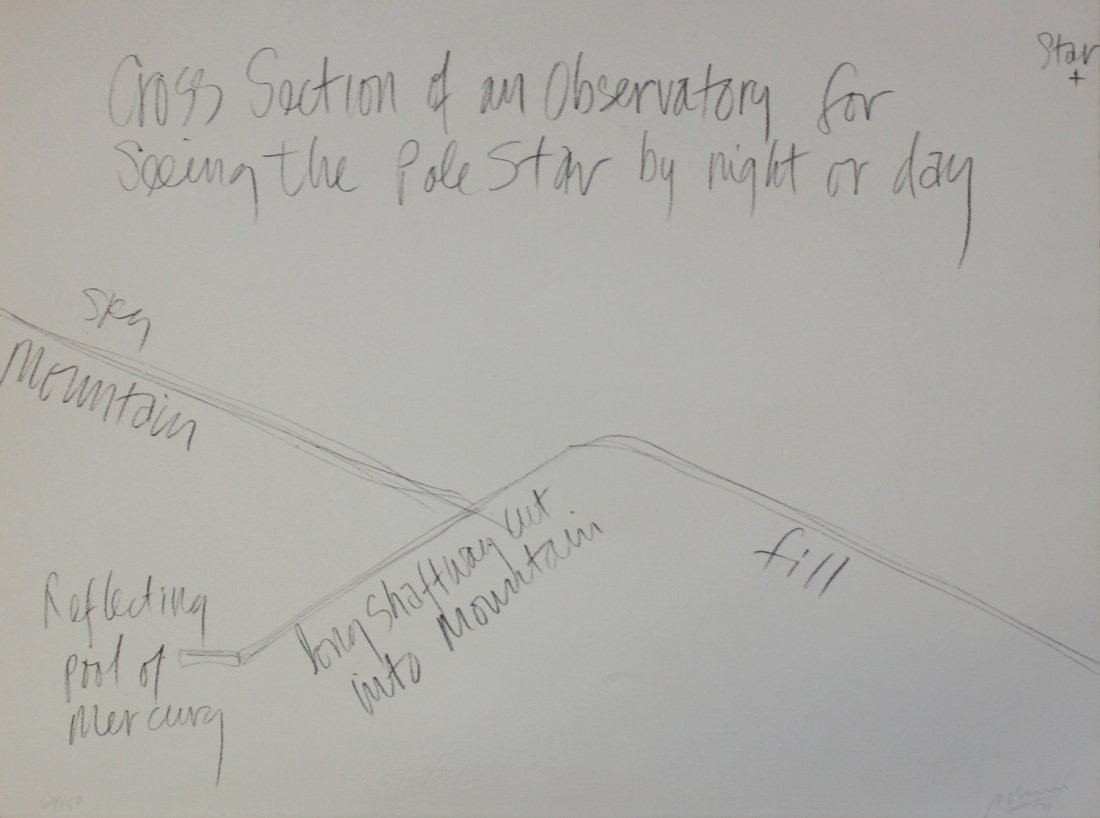 Cross Section of an Observatory for
Seeing the Pole Star by night or day
Star
+
Sky
Mountain
long shaftway cut
into mountain
fill
Reflecting
pool of
Mercury